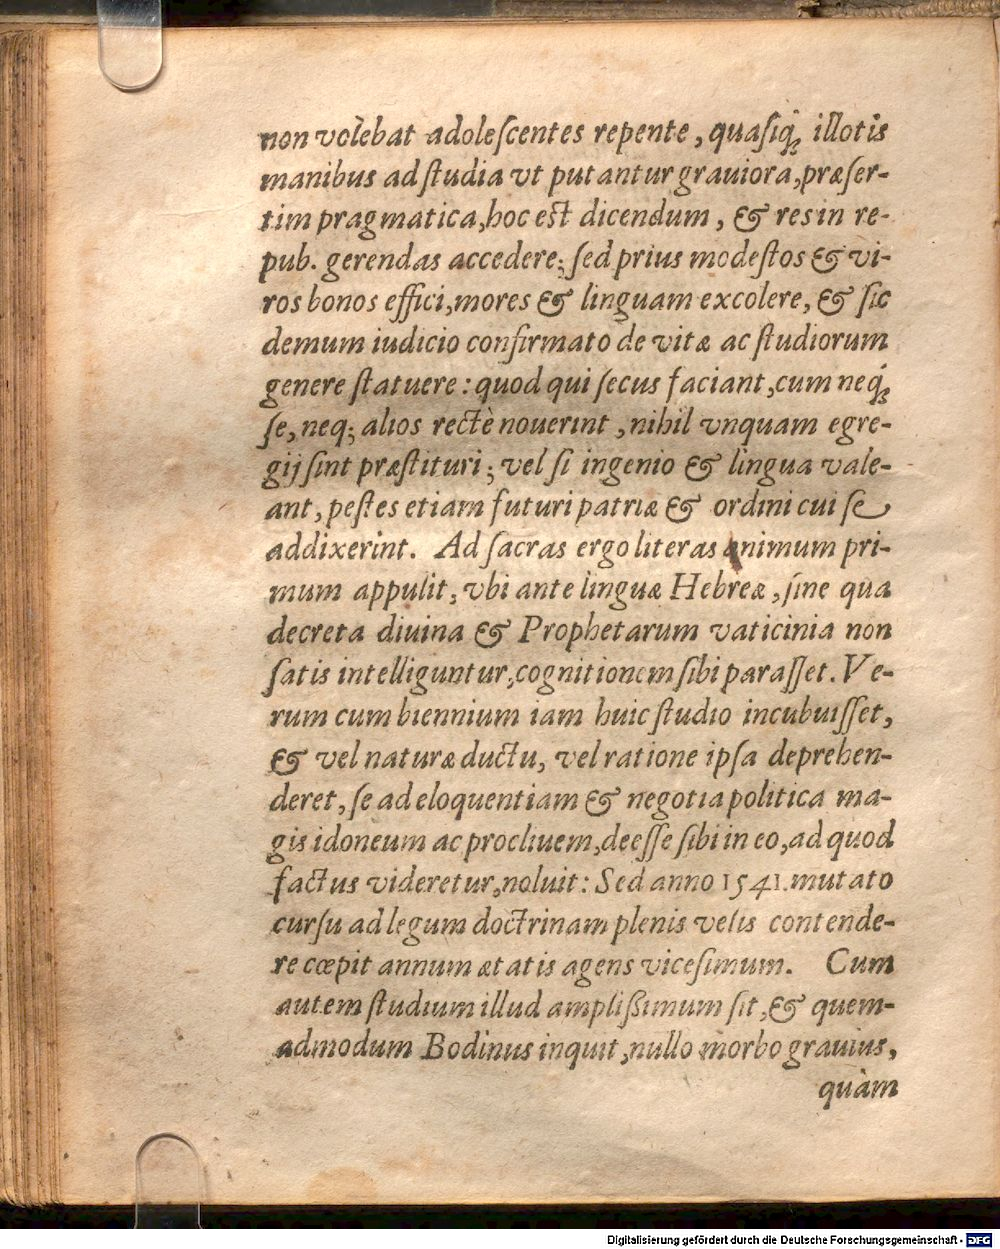 non volebat adoleſcentes repente, quaſiq́ꝫ illotis
manibus ad ſtudia vt putantur grauiora, præſer-
tim pragmatica, hoc est dicendum, & res in re-
pub. gerendas accedere; ſed prius modeſtos & vi-
ros bonos effici, mores & linguam excolere, & ſic
demum iudicio confirmato de vitæ ac ſtudiorum
genere ſtatuere: quod qui ſecus faciant, cum neq́ꝫ
ſe, neqꝫ alios rectè nouerint, nihil vnquam egre-
gij ſint præſtituri; vel ſi ingenio & lingua vale-
ant, peſtes etiam futuri patriæ & ordini cui ſe
addixerint. Ad ſacras ergo literas animum pri-
mum appulit, vbi ante linguæ Hebreæ, ſine qua
decreta diuina & Prophetarum vaticinia non
ſatis intelliguntur, cognitionem ſibi paraſſet. Ve-
rum cum biennium iam huic ſtudio incubuiſſet,
& vel naturæ ductu, vel ratione ipſa deprehen-
deret, ſe ad eloquentiam & negotia politica ma-
gis idoneum ac procliuem, deeſſe ſibi in eo, ad quod
factus videretur, noluit: Sed anno 1541. mutato
curſu ad legum doctrinam plenis velis contende-
re cœpit annum ætatis agens viceſimum. Cum
autem ſtudium illud ampliſsimum ſit, & quem-
admodum Bodinus inquit, nullo morbo grauius,
quàm
Digitalisierung gefördert durch die Deutsche Forschungsgemeinschaft - DFG